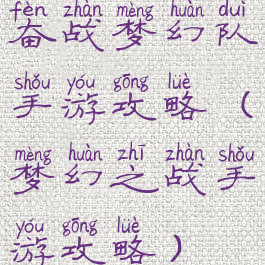 fèn zhàn mèng huàn duì
奋战梦幻队
shǒu yóu gōng lüè
手游攻略（
mèng huàn zhī zhàn shǒu
梦幻之战手
yóu gōng lüè
游攻略）